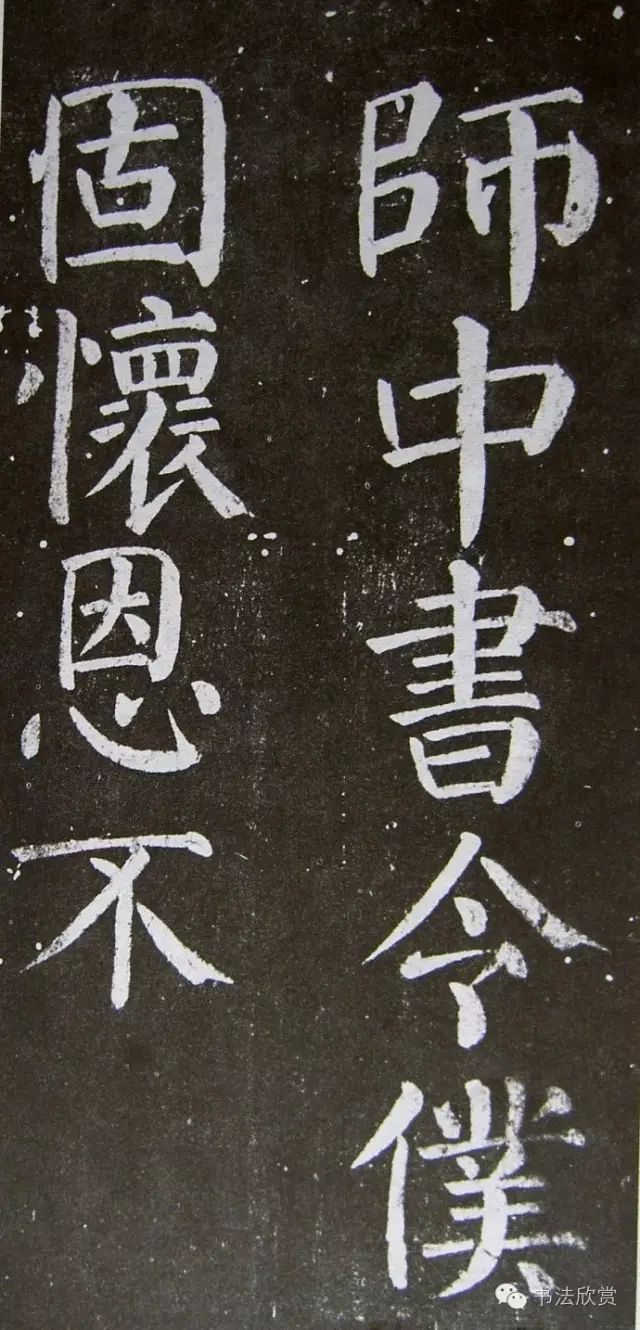 師中書令僕
固懷恩不
书法欣赏